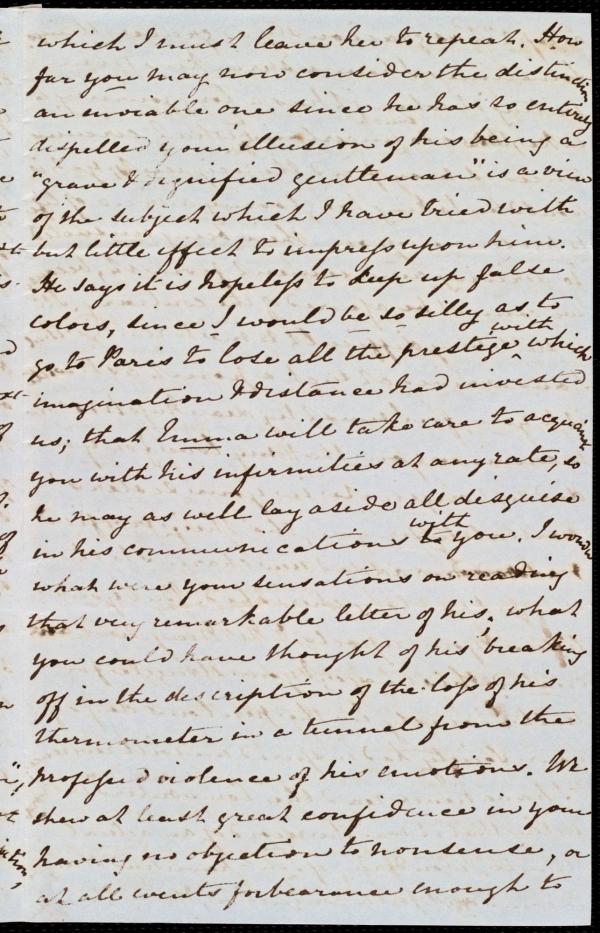 which I must leave her to repeat. How
far you may now consider the distinction
an inviable one since he has so entirely
dispelled your illusion of his being a
"grave & dignified gentleman" is a view
of the subject which I have tried with
but little effect to impress upon him.
He says it is hopeless to keep up false
colors, since I would be so silly as to
go to Paris to lose all the prestege with which
imagination & distance had invested
us; that Emma will take care to acquaint
you with his infirmities at any rate, so
he may as well lay aside all disguise
in his communications with you. I wonder
what were your sensations on reading
that very remarkable letter of his, what
you could have thought of his breaking
off in the description of the loss of his
thermometer in a tunnel from the
professed violence of his emotions. We
shew at least great confidence in your
having no objection to nonsense, or
at all events forbearance enough to